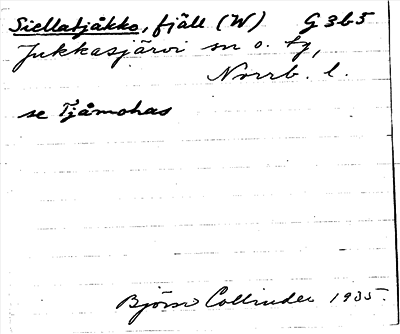 Siellatjåkko, fjäll (W) G 365
Jukkasjärvi sn o. tg,
Norrb. l.
se Tjåmohas
Björn Collinder 1935.